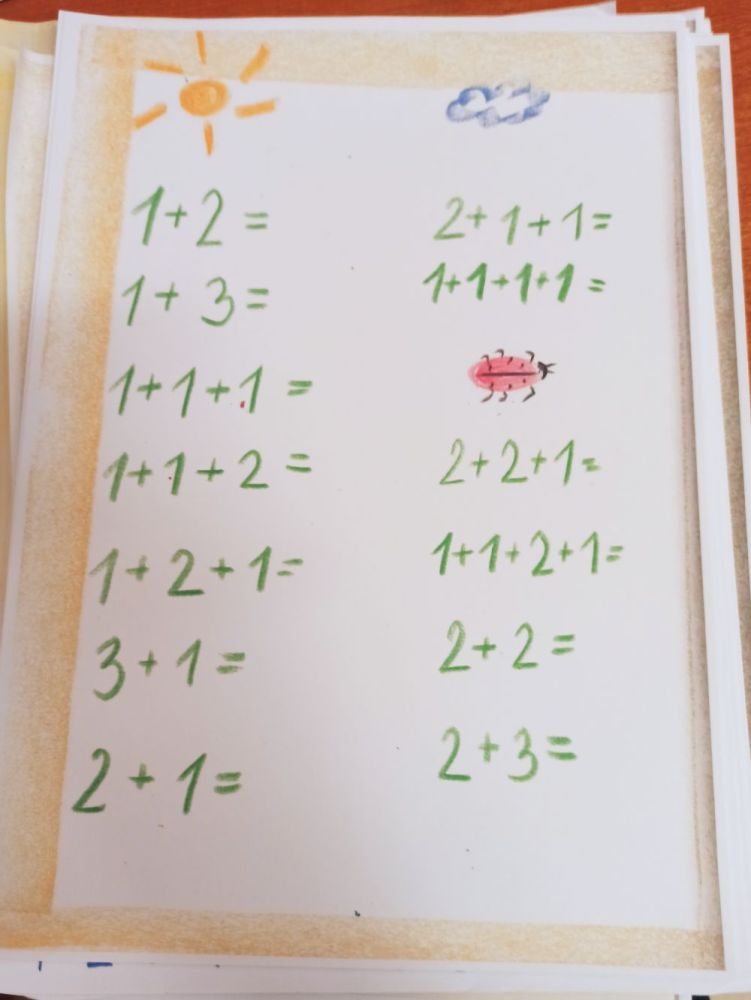 1+2=
1+3=
1+1+1=
1+1+2=
1+2+1=
3+1=
2+1=
2+1+1=
1+1+1+1=
2+2+1=
1+1+2+1=
2+2=
2+3=